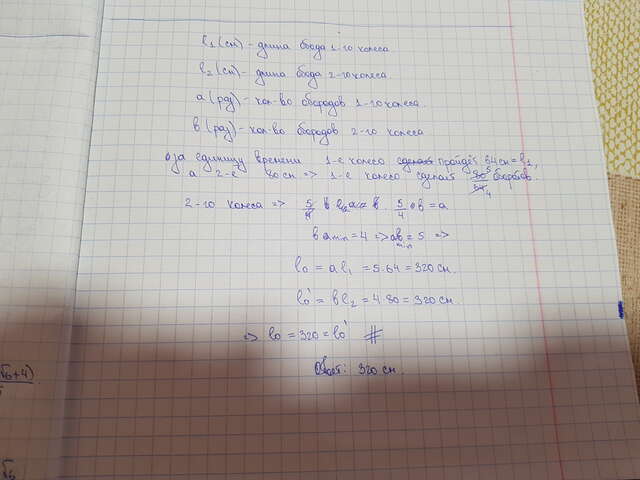 l₁ (см) - длина обода 1-го колеса
l₂ (см) - длина обода 2-го колеса
a (раз) - кол-во оборотов 1-го колеса
b (раз) - кол-во оборотов 2-го колеса
За единицу времени 1-е колесо пройдёт 64 см = l₁,
а 2-е 80 см => 1-е колесо сделает 80/64 5/4 оборотов
2-го колеса => 5/4 b = a
b min = 4 => a min = 5 =>
l₀ = a l₁ = 5·64 = 320 см.
l₀' = b l₂ = 4·80 = 320 см.
=> l₀ = 320 = l₀' #
Ответ: 320 см.
√6+4)
√6